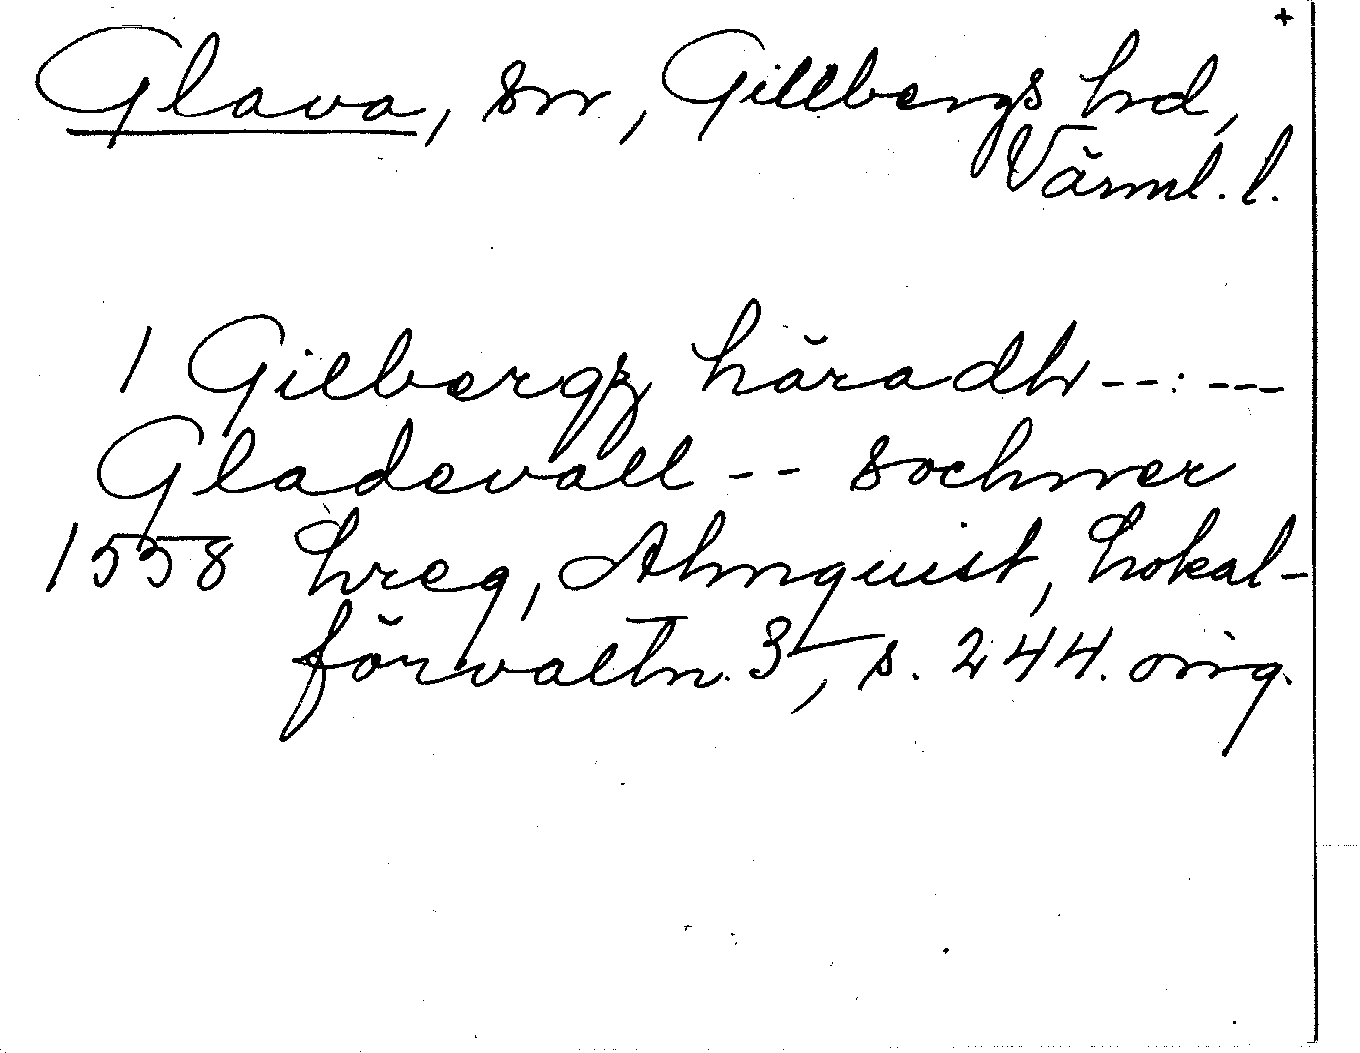 +
Glava, sn, Gillbergs hd,
Värml. l.
I Gilbergz häradh --:---
Gladevall -- sochner
1558 hreg, Almquist, Lokal-
förvaltn. 3, s. 244. orig.